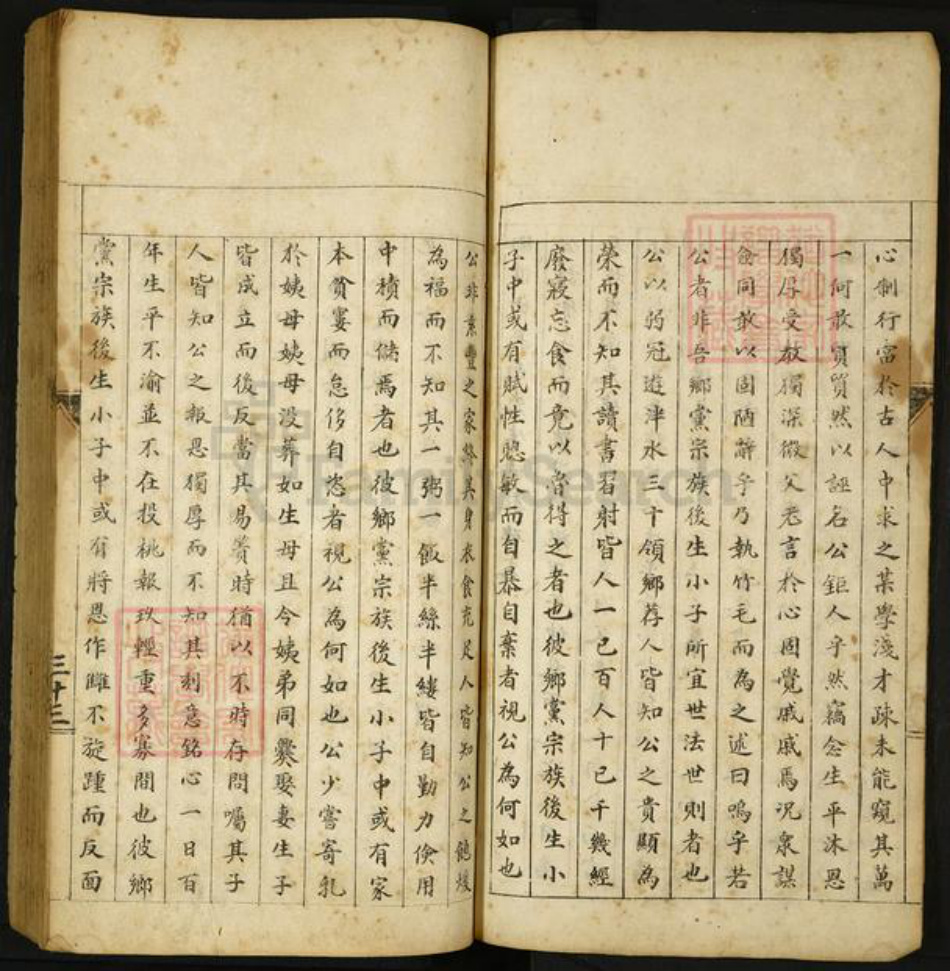 心制行當於古人中求之某學淺才疎未能窺其萬
一何敢貿貿然以誣名公鉅人乎然竊念生平沐恩
獨厚受教獨深微父老言於心固覺戚戚焉况衆謀
僉同敢以固陋辭乎乃執竹毛而為之述曰嗚乎若
公者非吾鄉黨宗族後生小子所宜世法世則者也
公以弱冠遊泮水三十領鄉荐人皆知公之貴顯為
榮而不知其讀書習射皆人一已百人十已千幾經
廢寢忘食而竟以得之者也彼鄉黨宗族後生小
子中或有賦性聰敏而自暴自棄者視公為何如也
公非素豐之家終其身衣食充足人皆知公之飽煖
為福而不知其一粥一飯半絲半縷皆自勤力儉用
中積而儲焉者也彼鄉黨宗族後生小子中或有家
本貧窶而怠侈自恣者視公為何如也公少嘗寄乳
於姨母姨母没葬如生母且令姨弟同爨娶妻生子
皆成立而後反當其易簀時猶以不時存問囑其子
人皆知公之報恩獨厚而不知其刻意銘心一日百
年生平不渝並不在投桃報玖輕重多寡間也彼鄉
黨宗族後生小子中或有將恩作雎不旋踵而反面
三十三
Family Search